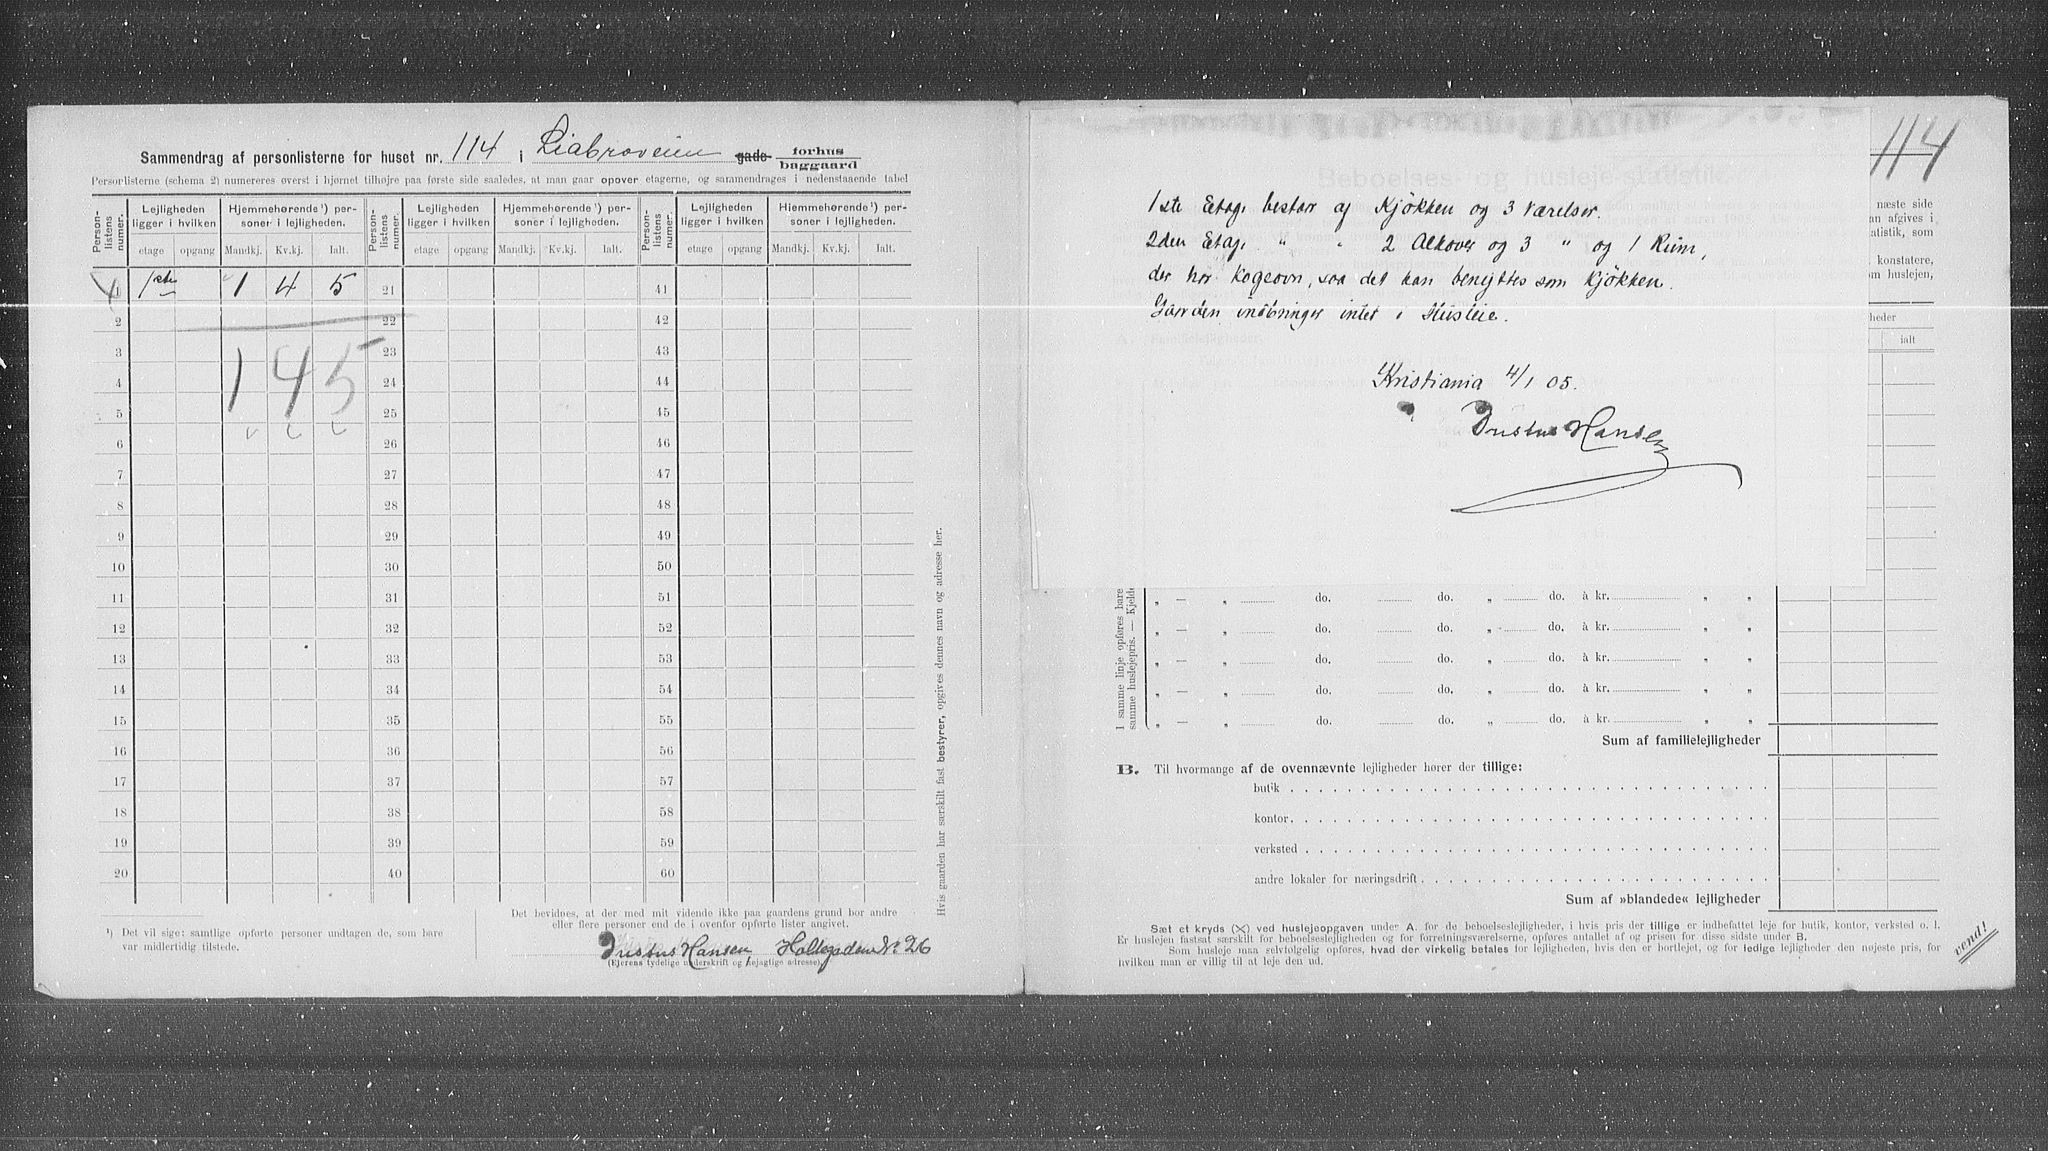 Sammendrag af personlisterne for huset nr. 114 i Liabroveien gade forhus baggaard
Personlisterne (schema 2) numereres øverst i hjørnet tilhøjre paa første side saaledes, at man gaar opover etagerne, og sammendrages i nedenstaaende tabel
Person-listens numer. Lejligheden ligger i hvilken Hjemmehørende¹) personer i lejligheden. Person-listens numer. Lejligheden ligger i hvilken Hjemmehørende¹) personer i lejligheden. Person-listens numer. Lejligheden ligger i hvilken Hjemmehørende¹) personer i lejligheden.
etage opgang Mandkj. Kv.kj. Ialt. etage opgang Mandkj. Kv.kj. Ialt. etage opgang Mandkj. Kv.kj. Ialt.
1 1ste 1 4 5 21 41
2 22 42
3 23 43
1 4 5
4 24 44
5 25 45
6 26 46
7 27 47
8 28 48
9 29 49
10 30 50
11 31 51
12 32 52
13 33 53
14 34 54
15 35 55
16 36 56
17 37 57
18 38 58
19 39 59
20 40 60
¹) Det vil sige: samtlige opførte personer undtagen de, som bare
var midlertidig tilstede.
Det bevidnes, at der med mit vidende ikke paa gaardens grund bor andre
eller flere personer end de i ovenfor opførte lister angivet.
Justus Hansen, Holtegaden Nr 26
(Ejerens tydelige underskrift og lejagtige adresse)
Hvis gaarden har særskilt fast bestyrer, opgives dennes navn og adresse her.
114
Beboelses- og husleje-statistik
1ste Etage bestaar af Kjøkken og 3 Værelser.
2den Etage " " 2 Alkover og 3 " og 1 Rum,
der har Kogeovn, saa det kan benyttes som Kjøkken.
Gaarden indbringer intet i Husleie.
Kristiania 4/1 05.
Justus Hansen
næste side
an afgives i
tatistik, som
konstatere,
om huslejen,
heder
ialt
A. Familielejligheder.
I samme linje opføres bare
samme huslejepris. — Kjelde
" — " do. do. " do. à kr. " "
" — " do. do. " do. à kr. " "
" — " do. do. " do. à kr. " "
" — " do. do. " do. à kr. " "
" — " do. do. " do. à kr. " "
Sum af familielejligheder
B. Til hvormange af de ovennævnte lejligheder hører der tillige:
butik
kontor
verksted
andre lokaler for næringsdrift
Sum af »blandede« lejligheder
Sæt et kryds (×) ved huslejeopgaven under A. for de beboelseslejligheder, i hvis pris der tillige er indbefattet leje for butik, kontor, verksted o. l.
Er huslejen fastsat særskilt for beboelseslejligheden og for forretningsværelserne, opføres antallet af og prisen for disse sidste under B.
Som husleje maa selvfølgelig opføres, hvad der virkelig betales for lejligheden, hvis den er bortlejet, og for ledige lejligheder den nøjeste pris, for
hvilken man er villig til at leje den ud.
vend!